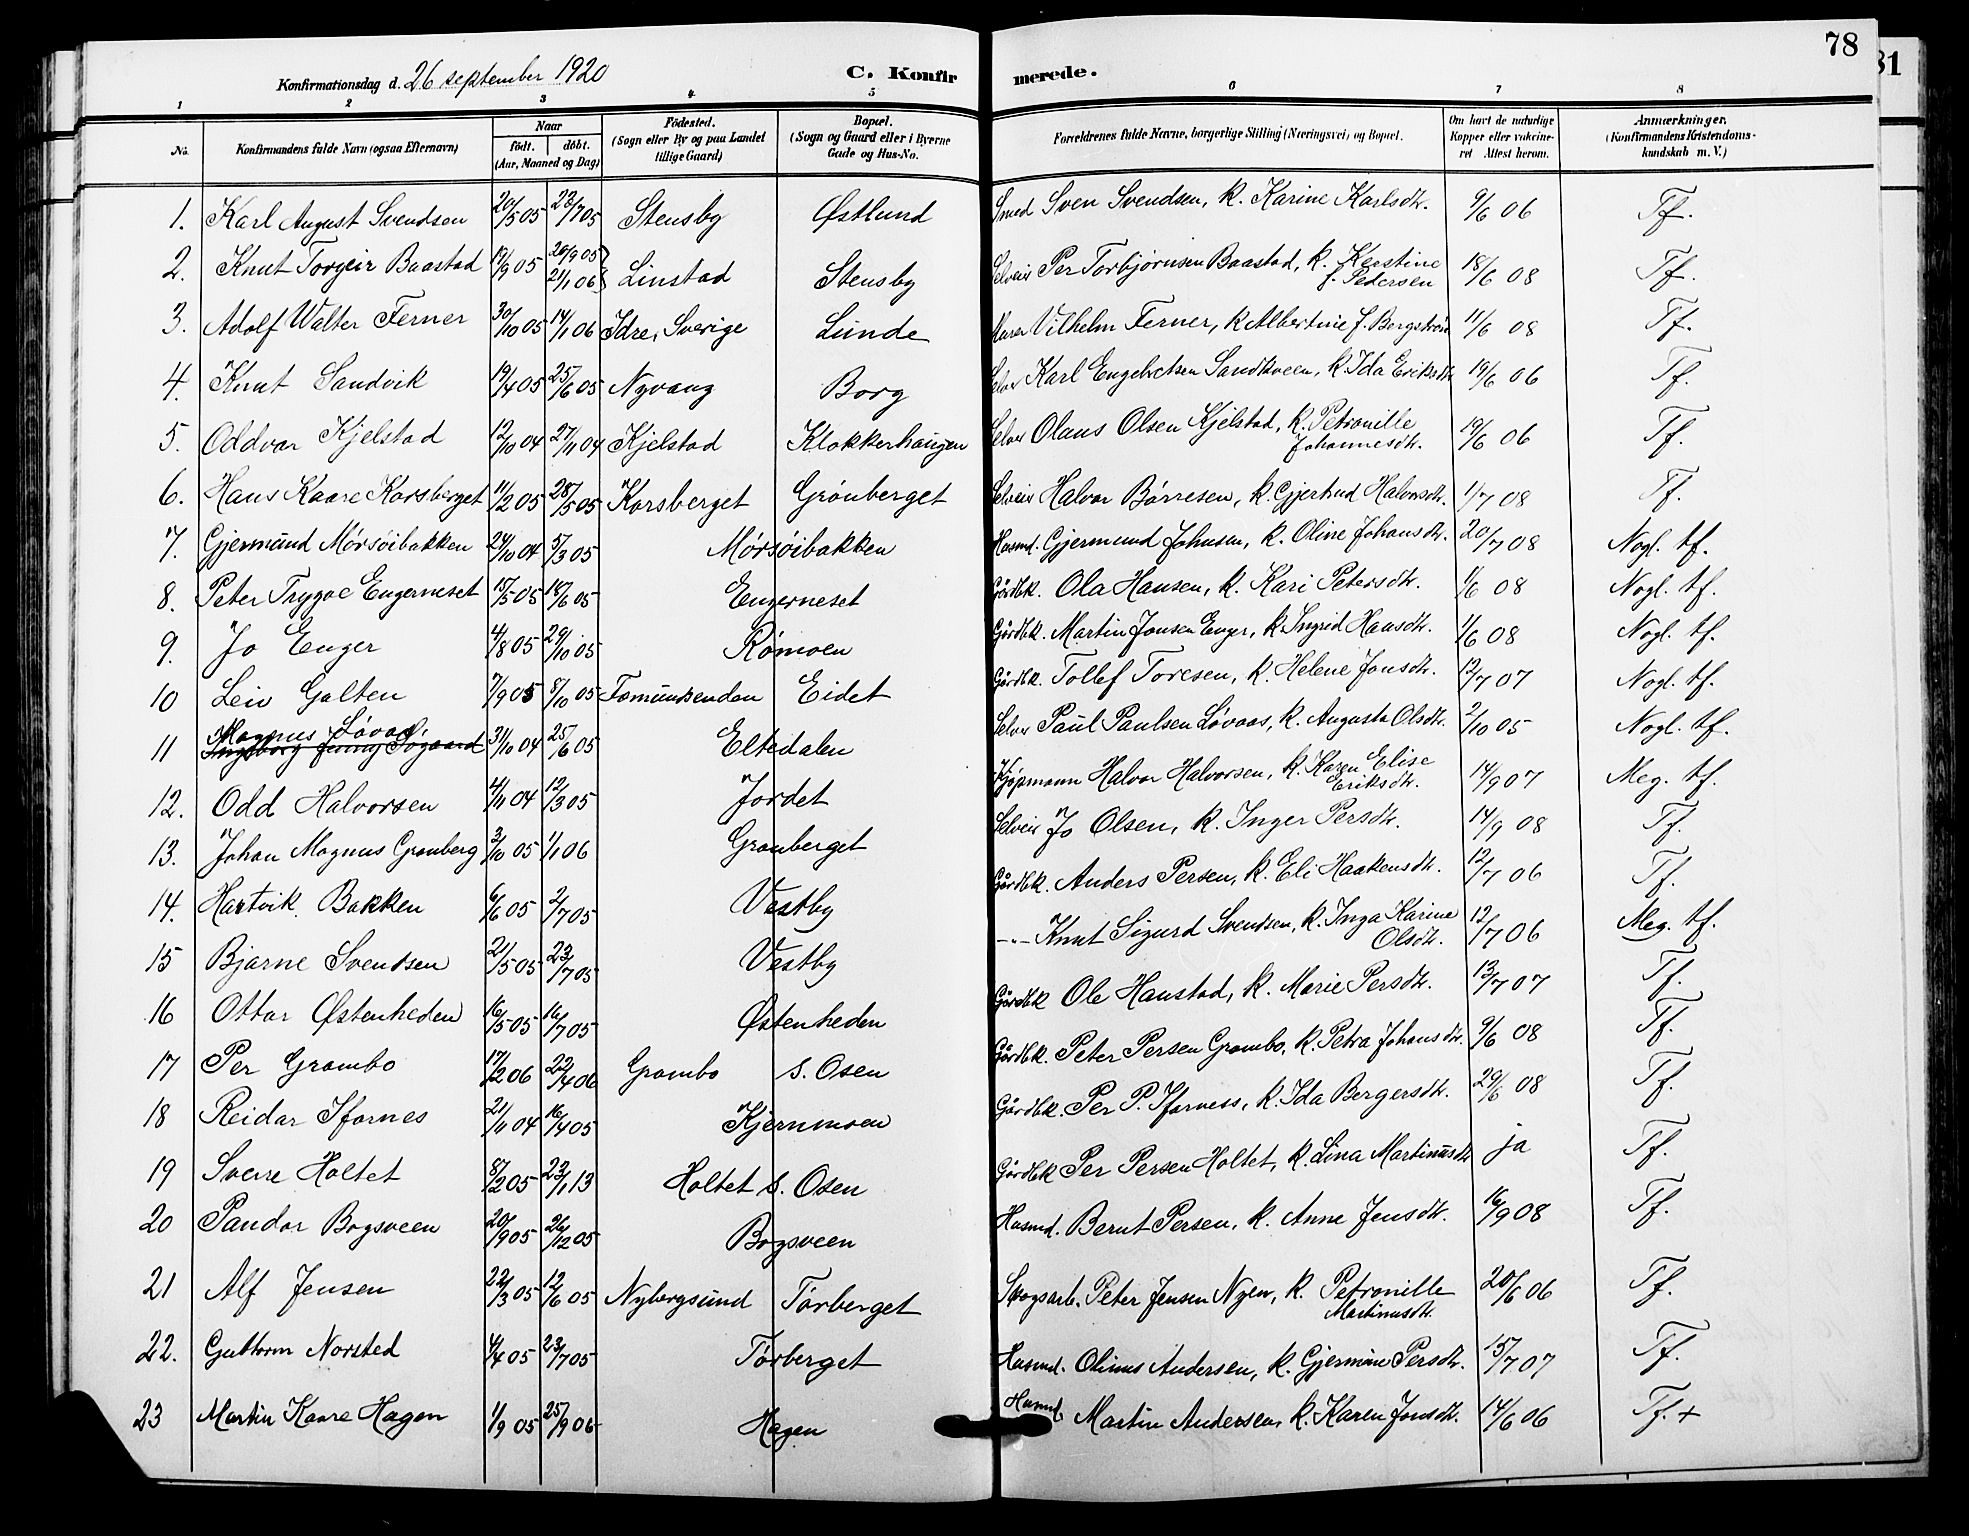 78
81
Konfirmationsdag d. 26 september 1920
C. Konfirmerede.
1 2 3 4 5 6 7 8
No. | Konfirmandens fulde Navn (ogsaa Efternavn) | Naar født. døbt. (Aar, Maaned og Dag) | Födested. (Sogn eller By og paa Landet tillige Gaard) | Bopæl. (Sogn og Gaard eller i Byerne Gade og Hus-No. | Forældrenes fulde Navne, borgerlige Stilling (Næringsvei) og Bopæl. | Om havt de naturlige Kopper eller vakcineret Attest herom. | Anmærkninger. (Konfirmandens Kristendomskundskab m. V.)
1. Karl August Svendsen 20/5 05 23/7 05 Stensby Østlund Smed Sven Svendsen, k. Karine Karlsdtr. 9/6 06 Tf.
2. Knut Torgeir Baastad 19/9 05 20/9 05 21/1 06 Linstad Stensby Selveier Per Torbjørnsen Baastad, k. Kerstine f. Pedersen 18/6 08 Tf.
3. Adolf Walter Ferner 30/10 05 14/1 06 Idre, Sverige Lunde Murer Vilhelm Ferner, k Albertine f. Bergström 11/6 08 Tf.
4. Knut Sandvik 19/4 05 25/6 05 Nyvang Borg Selv Karl Engebretsen Sandkveen, k. Ida Eriksdtr 19/6 06 Tf.
5. Oddvar Kjelstad 12/10 04 27/11 04 Kjelstad Klokkerhaugen Selvei Olaus Olsen Kjelstad, k. Petronille Johannesdtr. 19/6 06 Tf.
6. Hans Kaare Korsberget 11/2 05 28/5 05 Korsberget Grønberget Selveier Halvor Børresen, k. Gjertrud Halvorsdtr. 1/7 08 Tf.
7. Gjermund Mórsóibakken 24/10 04 5/3 05 Mórsóibakken Husmd. Gjermund Johnsen, k. Oline Johansdtr. 20/7 08 Nogl. tf.
8. Peter Trygve Engerneset 15/5 05 18/6 05 Engerneset Gårdbk. Ola Hansen, k. Kari Petersdtr. 1/6 08 Nogl. tf.
9. Jo Enger 4/8 05 29/10 05 Rømoen Gårdbk. Martin Jonsen Enger, k. Ingrid Hansdtr. 1/6 08 Nogl. tf.
10 Leiv Galten 7/9 05 8/10 05 Fæmundsenden Eidet Gårdbk. Tollef Toresen, k. Helene Jonsdtr. 12/7 07 Nogl. tf.
11 Magnus Løvaas Ingeborg Jenny Sogaard 31/10 04 25/6 05 Eltedalen Selvei Paul Paulsen Løvaas, k. Augusta Olsdtr. 2/10 05 Nogl. tf.
12. Odd Halvorsen 4/11 04 12/3 05 Jordet Kjøpmann Halvor Halvorsen, k. Karen Elise Eriksdtr. 14/9 07 Meg. tf.
13. Johan Magnus Grønberg 3/10 05 1/1 06 Grønberget Selveier Jo Olsen, k. Inger Persdtr. 14/9 08 Tf.
14. Hartvik Bakken 6/6 05 2/7 05 Vestby Gårdbk. Anders Persen, k. Eli Haakensdtr. 12/7 06 Tf.
15 Bjarne Svendsen 2/5 05 23/7 05 Vestby -"- Knut Sigurd Svendsen, k. Inga Karine Olsdtr. 12/7 06 Meg. tf.
16 Ottar Østenheden 16/5 05 16/7 05 Østenheden Gårdbk Ole Haustad, k. Marie Persdtr. 13/7 07 Tf.
17 Per Grambo 17/2 06 22/4 06 Grambo s. Osen Gårdbk. Peter Persen Grambo, k. Petra Johansdtr. 9/6 08 Tf.
18 Reidar Ifarnes 21/11 04 16/4 05 Kjernmoen Gårdbk. Per P. Ifarness, k. Ida Bergersdtr. 29/6 08 Tf.
19 Sverre Holtet 8/2 05 23/1 13 Holtet s. Osen Gårdbk Per Persen Holtet, k. Lina Martinusdtr ja Tf.
20 Sandor Bogsveen 20/9 05 26/12 05 Bogsveen Husmd. Bernt Persen, k. Anne Jensdtr. 16/9 08 Tf.
21 Alf Jensen 22/3 05 12/6 05 Nybergsund Tørberget Skogsarb. Peter Jensen Nyen, k. Petronille Martinusdtr. 20/6 06 Tf.
22. Guttorm Norsted 4/4 05 23/7 05 Tørberget Husmd. Olinus Andersen, k. Gjermine Persdtr. 15/7 07 Tf.
23 Martin Kaare Hagen 1/9 05 25/9 06 Hagen Husmd. Martin Andersen, k. Karen Jonsdtr. 14/6 06 Tf. +